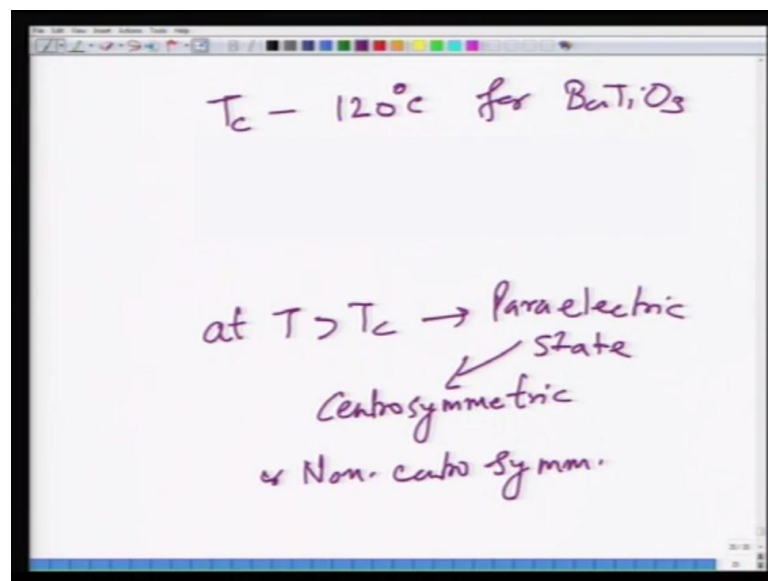 File Edit View Insert Actions Tools Help
Tc — 120°C for BaTiO3
at T > Tc → Paraelectric
state
Centrosymmetric
or Non-centro symm.